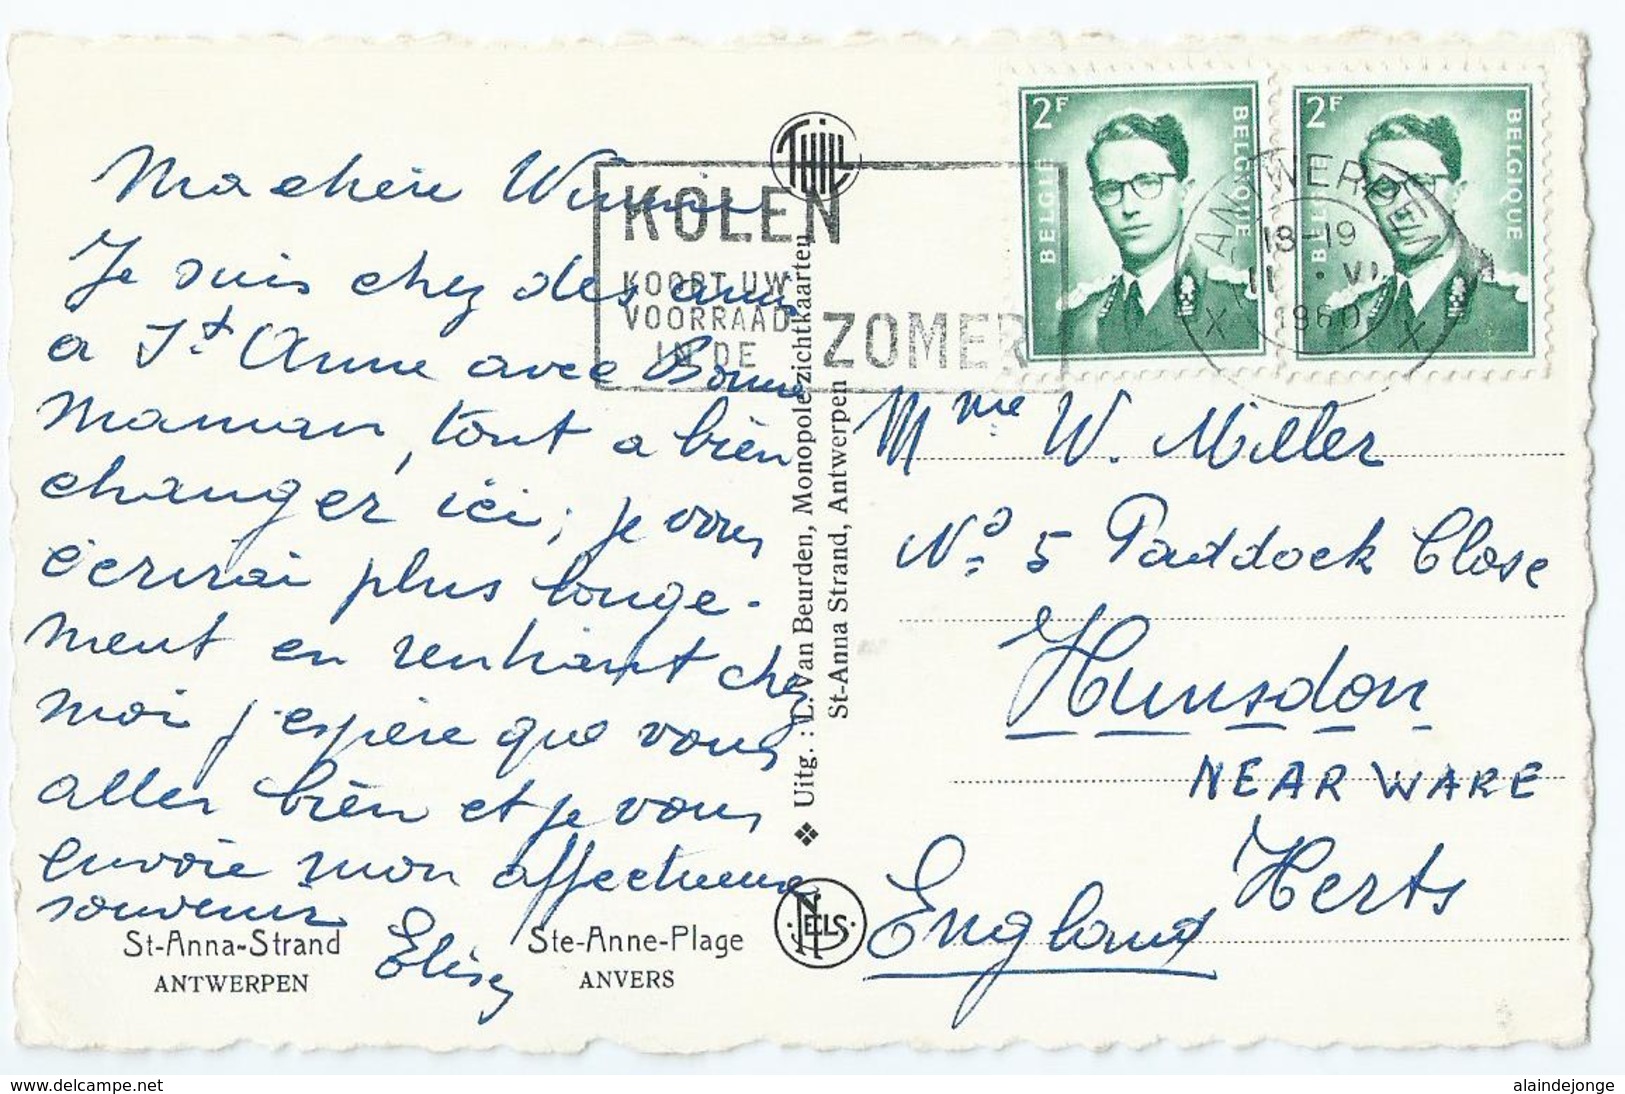 Ma chère Winnie
Je suis chez des amis
a St Anne avec Bonne
maman, tout a bien
changer ici, je vous
écrirai plus longe-
ment en rentrant chez
moi j'espère que vous
aller bien et je vous
envoie mon affectueux
souvenir
Elisez
St-Anna-Strand
ANTWERPEN
Ste-Anne-Plage
ANVERS
THILL
KOLEN
KOOPT UW
VOORRAAD
IN DE
ZOMER
❖ Uitg. : L. Van Beurden, Monopole zichtkaarten
St-Anna Strand, Antwerpen
NELS
2F
BELGIE
BELGIQUE
2F
BELGIE
BELGIQUE
ANTWERPEN
18-19
11 · VI
1960
X X
Mme W. Miller
No 5 Paddock Close
Hunsdon
NEAR WARE
Herts
England
www.delcampe.net
alaindejonge